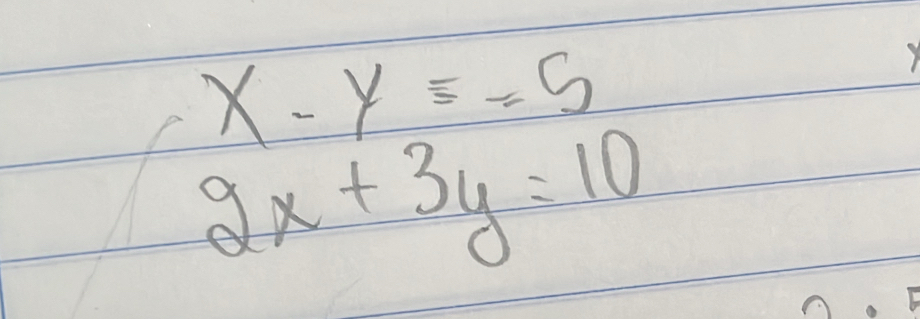 X - Y = -5
2x + 3y = 10